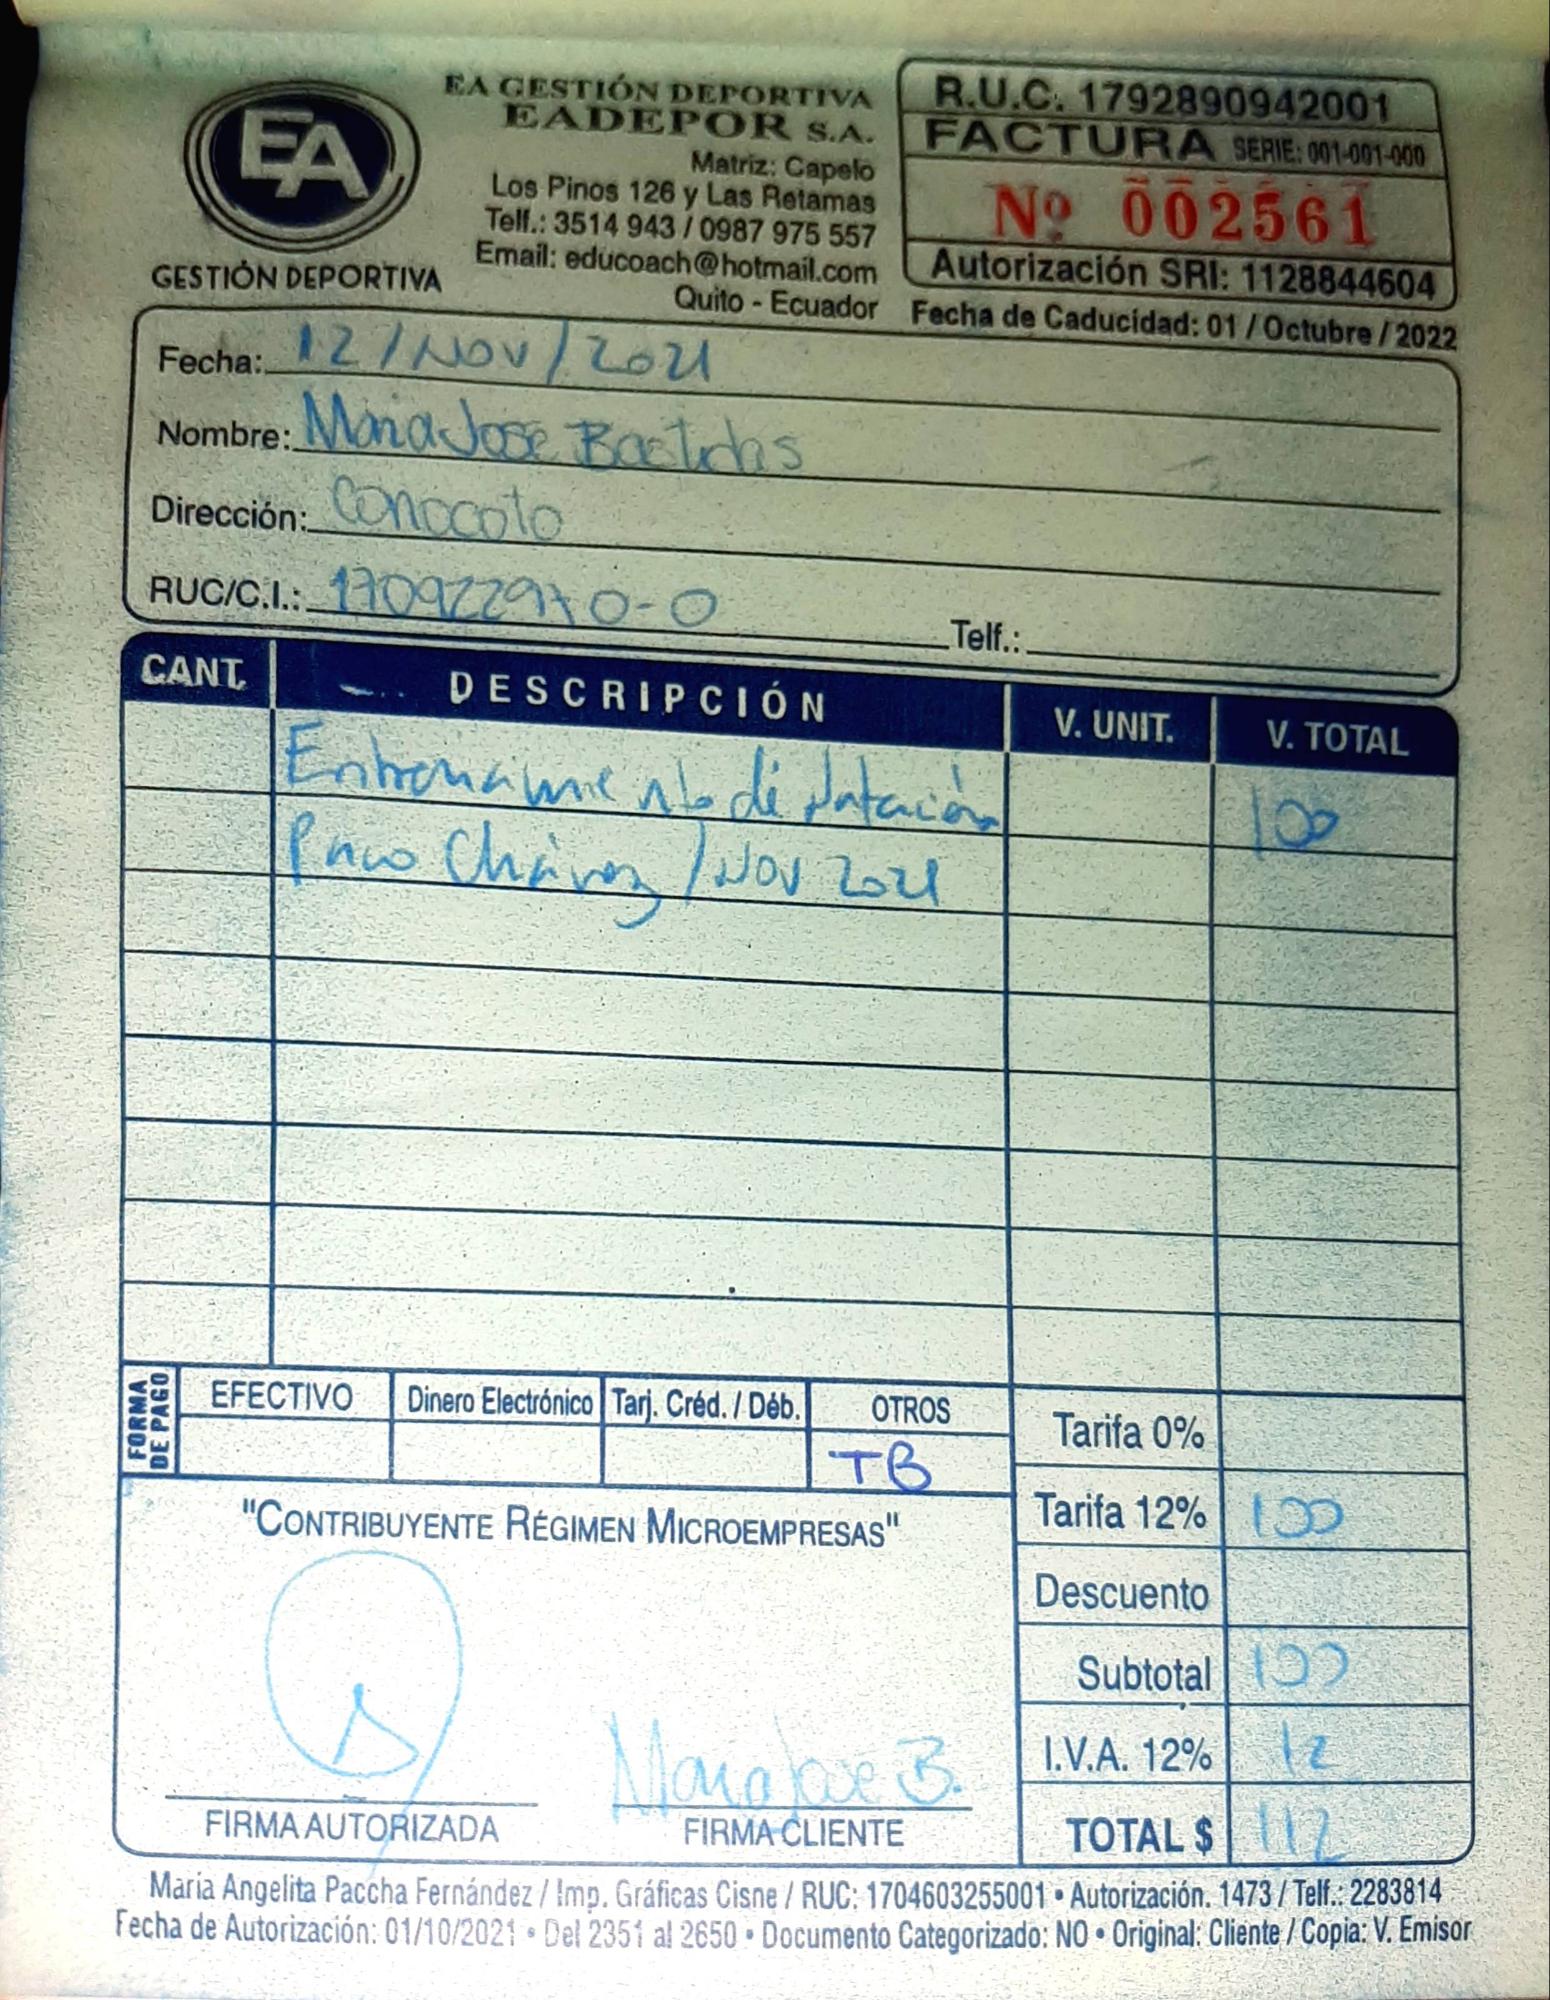 EA
GESTIÓN DEPORTIVA
EA GESTIÓN DEPORTIVA
EADEPOR S.A.
Matriz: Capelo
Los Pinos 126 y Las Retamas
Telf.: 3514 943 / 0987 975 557
Email: educoach@hotmail.com
Quito - Ecuador
R.U.C. 1792890942001
FACTURA SERIE: 001-001-000
Nº 002561
Autorización SRI: 1128844604
Fecha de Caducidad: 01 / Octubre / 2022
Fecha: 12/NOV/2021
Nombre: Maria Jose Bastidas
Dirección: Conocoto
RUC/C.I.: Telf.:
CANT. DESCRIPCIÓN V. UNIT. V. TOTAL
Entrenamiento de Natación 100
Paco Chávez / NOV 2021
FORMA DE PAGO
EFECTIVO Dinero Electrónico Tarj. Créd. / Déb. OTROS
TB
Tarifa 0%
Tarifa 12% 100
Descuento
Subtotal 100
I.V.A. 12% 12
TOTAL $ 112
"CONTRIBUYENTE RÉGIMEN MICROEMPRESAS"
Maria Jose B.
FIRMA AUTORIZADA FIRMA CLIENTE
María Angelita Paccha Fernández / Imp. Gráficas Cisne / RUC: 1704603255001 • Autorización. 1473 / Telf.: 2283814
Fecha de Autorización: 01/10/2021 • Del 2351 al 2650 • Documento Categorizado: NO • Original: Cliente / Copia: V. Emisor